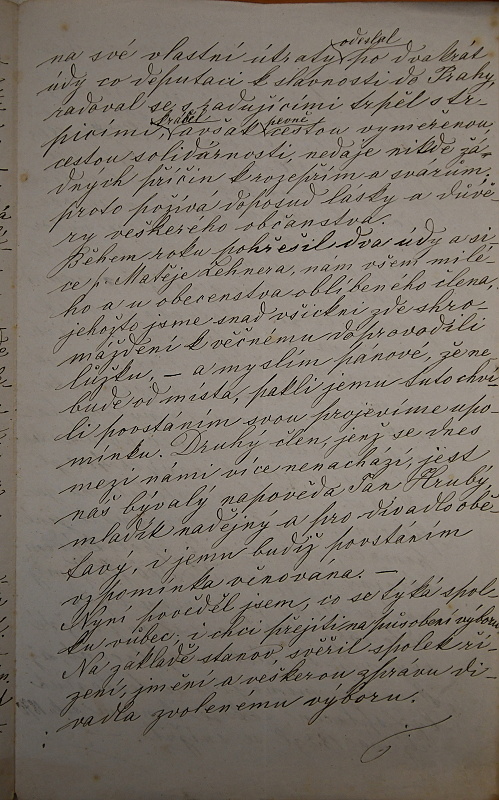 odeslal
na své vlastní útraty po dvakrát
údy co deputaci k slavnosti do Prahy,
radoval se s radujícími trpěl str-
kráčel pevně
pícími, avšak cestou vyměřenou
cestou solidárnosti, nedaje nikdě žá-
dných příčin k rozepřím a svarům.
proto požívá doposud lásky a důvě-
ry veškerého občanstva.
Během roku pohřešil dva údy a si-
ce p. Matěje Lehnera, nám všem milé-
ho a u obecenstva oblíbeného člena,
jehožto jsme snad všickni zde shro-
máždění k věčnému doprovodili
lůžku, — a myslím pánové, že ne
bude od místa, pakli jemu tuto chví
li povstáním svou projevíme upo-
mínku. Druhý člen, jenž se dnes
mezi námi více nenachází, jest
náš bývalý napověda Jan Hrubý,
mladík nadějný a pro divadlo obě-
tavý, i jemu budiž povstáním
vzpomínka věnována. —
Nyní pověděl jsem, co se týká spol-
ku vůbec, i chci přejíti na působení výboru
Na základě stanov, svěřil spolek ří-
zení, jmění a veškerou zprávu di-
vadla zvolenému výboru.